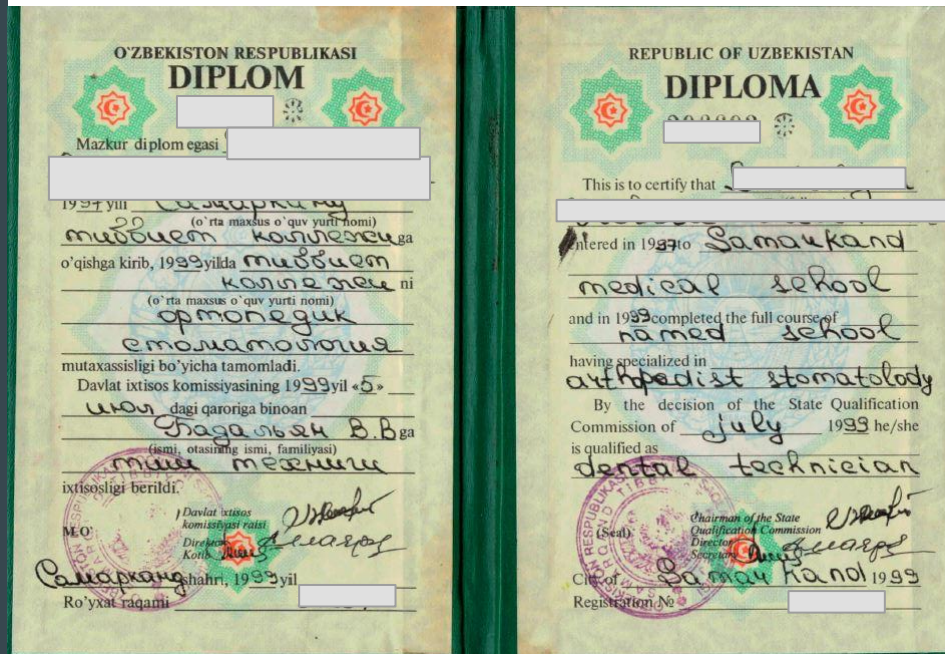 O'ZBEKISTON RESPUBLIKASI
DIPLOM
Mazkur diplom egasi
1997 yili Самарканд
(o`rta maxsus o`quv yurti nomi)
тиббиет коллежи ga
o'qishga kirib, 1999 yilda тиббиет
коллежи ni
(o`rta maxsus o`quv yurti nomi)
ортопедик
стоматология
mutaxassisligi bo'yicha tamomladi.
Davlat ixtisos komissiyasining 1999 yil «5»
июл dagi qaroriga binoan
Бадальян В.В ga
(ismi, otasining ismi, familiyasi)
тиш техниги
ixtisosligi berildi.
Davlat ixtisos
komissiyasi raisi
M.O'
Direktor
Kotib
Самарканд shahri, 1999 yil
Ro'yxat raqami
REPUBLIC OF UZBEKISTAN
DIPLOMA
This is to certify that
entered in 1997 to Samarkand
medical school
and in 1999 completed the full course of
named school
having specialized in
arthopedist stomatolody
By the decision of the State Qualification
Commission of july 1999 he/she
is qualified as
dental technician
Chairman of the State
Qualification Commission
(Seal)
Director
Secretary
City of Samarkand 1999
Registration №